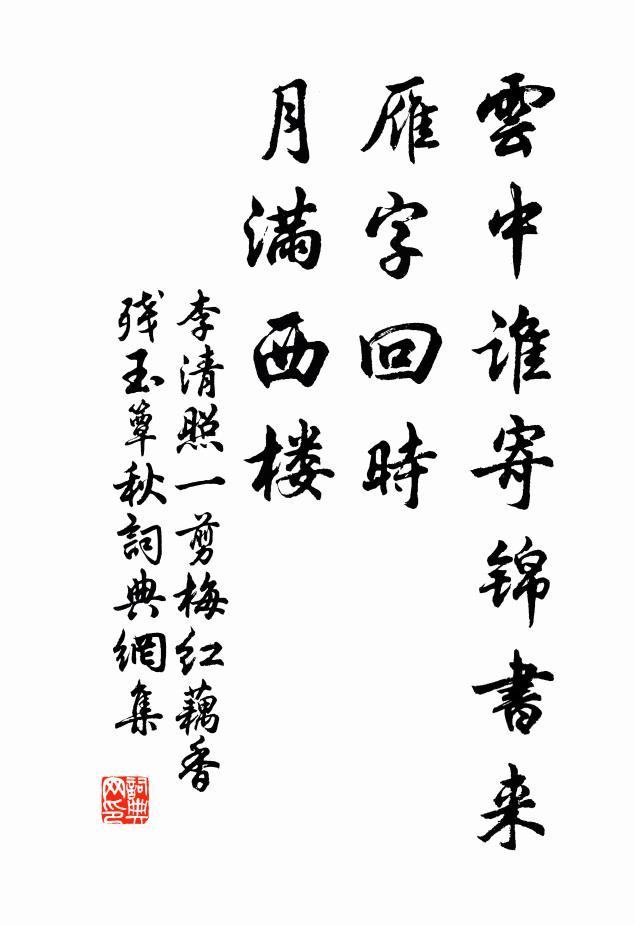 雲中谁寄锦書来
雁字回時
月满西楼
李清照一剪梅红藕香
残玉簟秋詞典網集
詞典网印